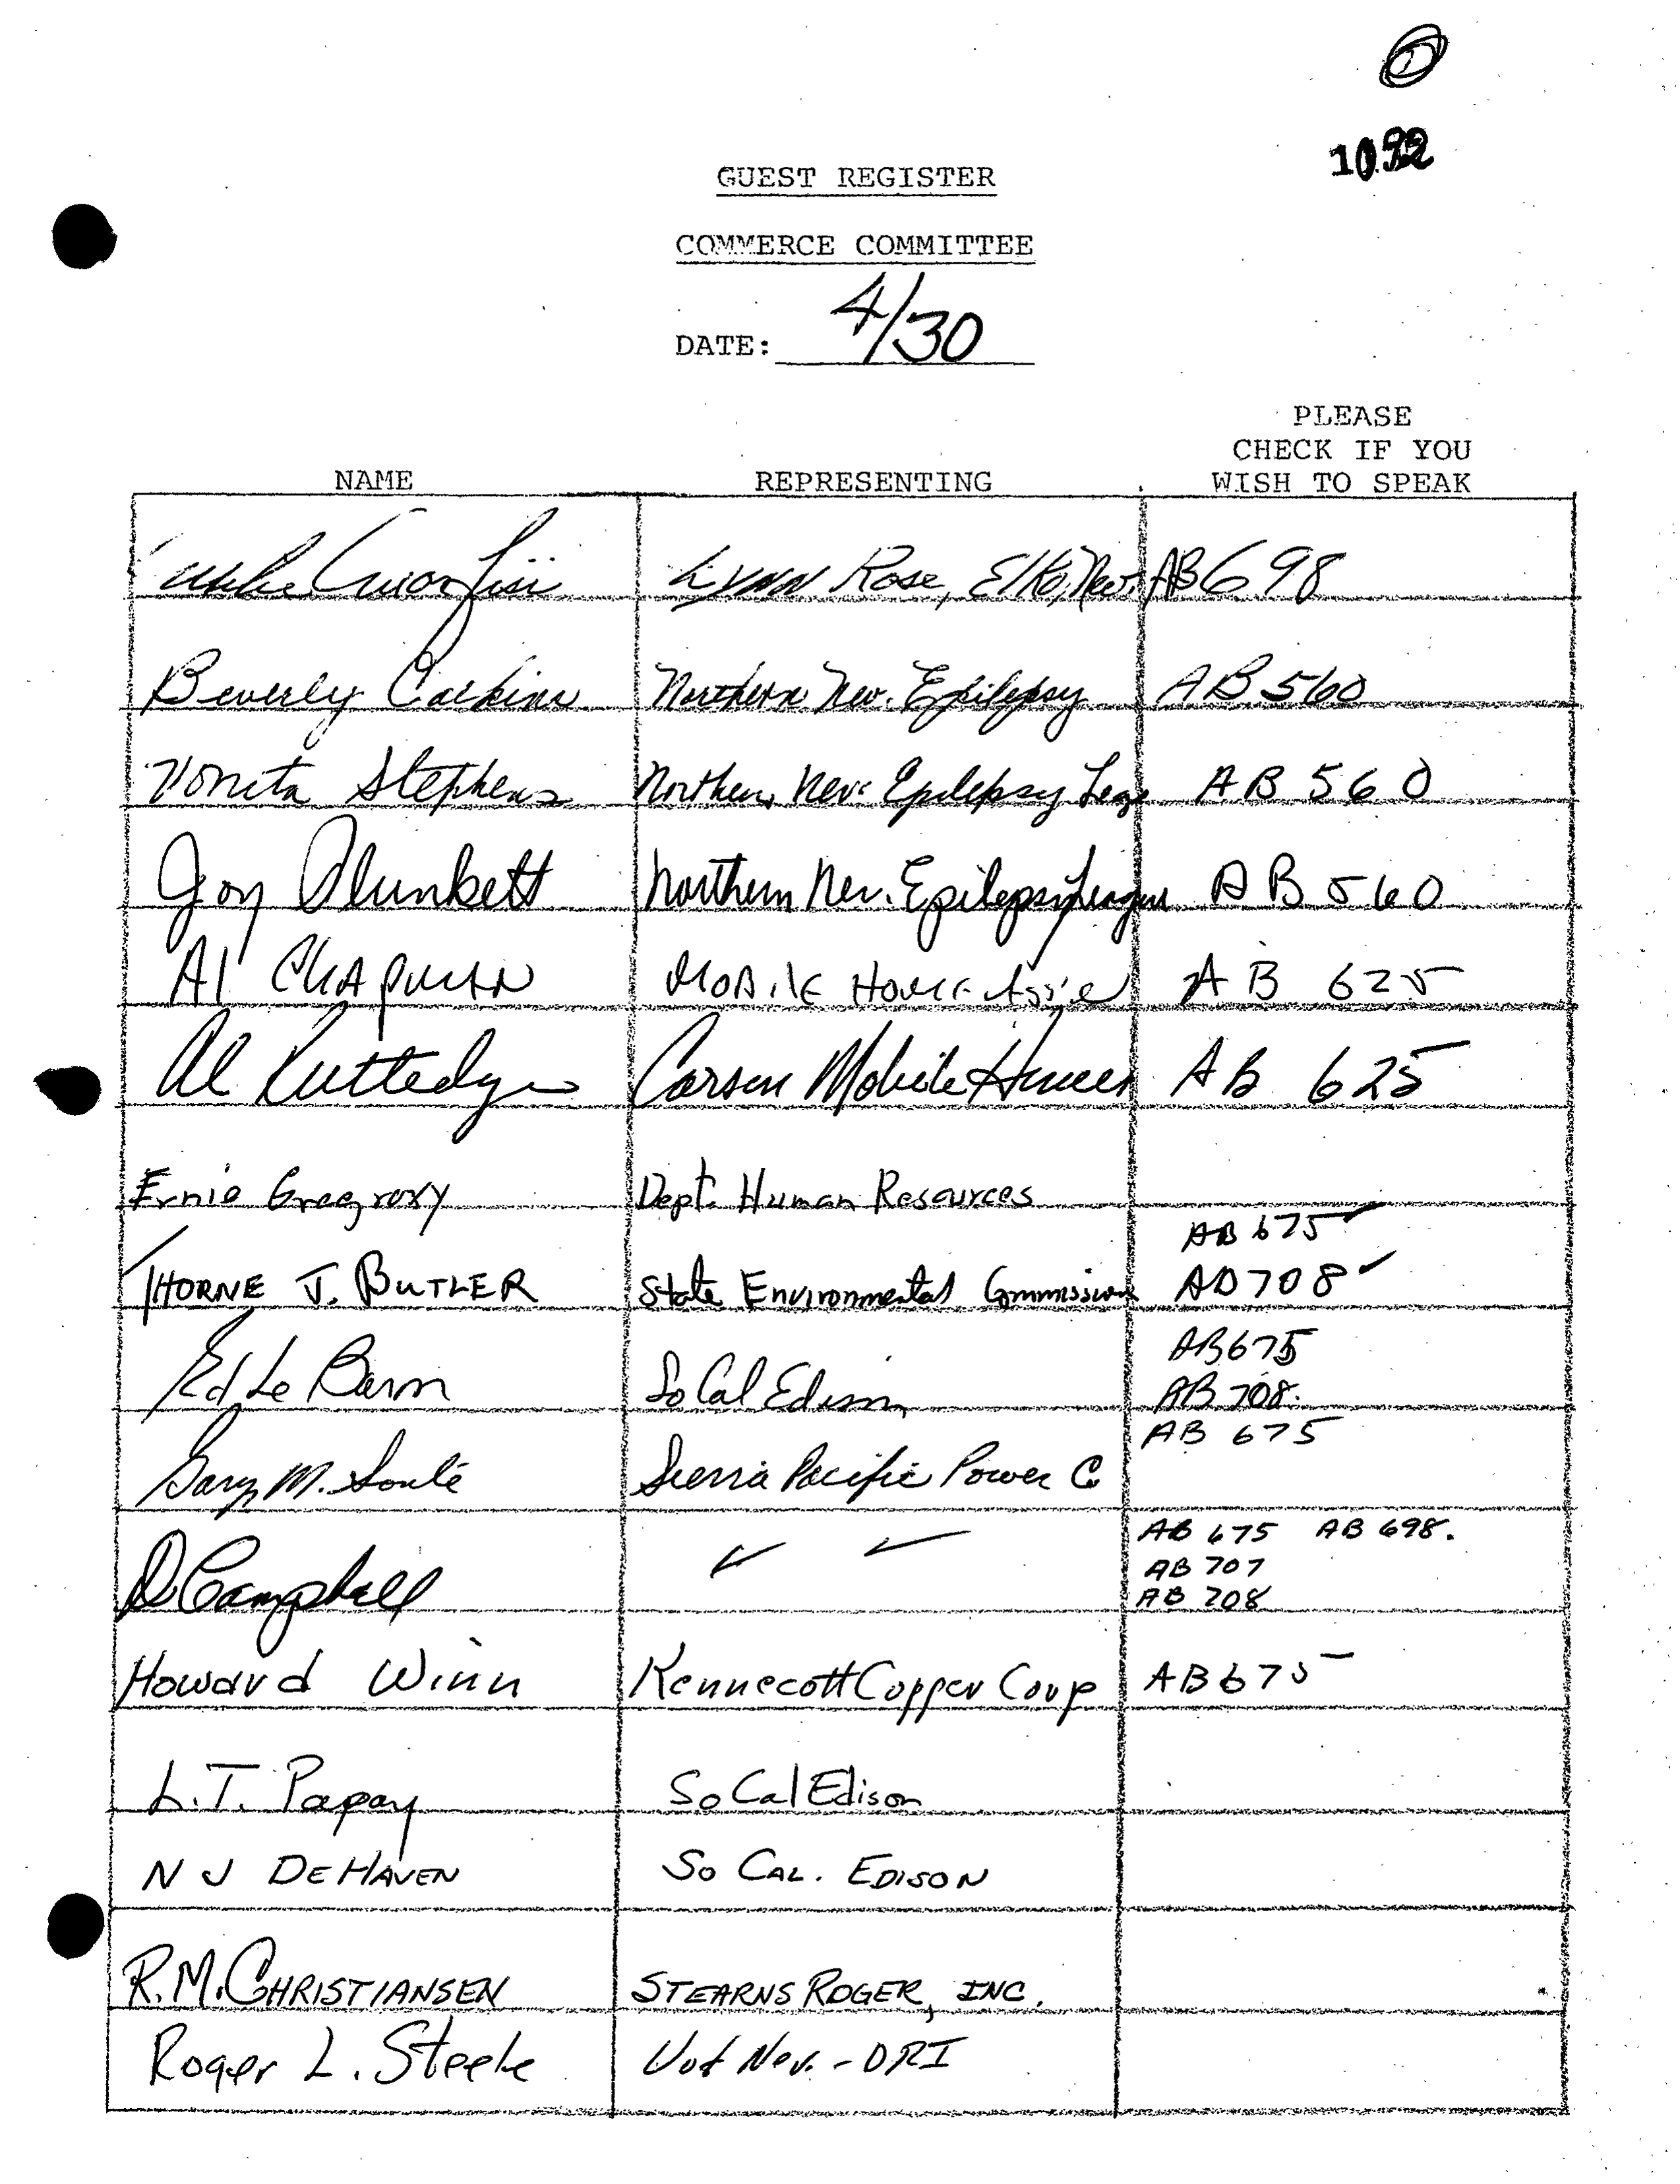 GUEST REGISTER
COMMERCE COMMITTEE
DATE: 4/30
PLEASE
CHECK IF YOU
NAME REPRESENTING WISH TO SPEAK
Lynn Rose, Elko, Nev. AB 698
Beverly Northern Nev. Epilepsy AB 560
Vonita Stephens Northern Nev. Epilepsy AB 560
Joy Plunkett Northern Nev. Epilepsy League AB 560
Al CHAPMAN MOBILE HOME AB 625
Al Ruttledge Carson Mobile Homes AB 625
Ernie Gregory Dept. Human Resources
AB 675 ✓
THORNE J. BUTLER State Environmental Commission AB 708 ✓
AB 675
Ed Le So Cal Edison AB 708.
AB 675
Gary M. Soulé Sierra Pacific Power C
AB 675 AB 698.
D Campbell ✓ ✓ AB 707
AB 708
Howard Winn Kennecott Copper Corp AB 675
L.T. Papay So Cal Edison
N J DEHAVEN SO CAL. EDISON
R.M. CHRISTIANSEN STEARNS ROGER, INC.
Roger L. Steele U of Nev. - DRI